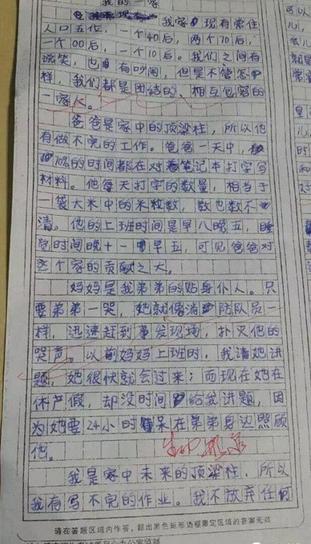 我的一家
我家现有常住
人口五位，一个40后，两个70后，
一个00后，一个10后。我们之间有
说笑，也有吵闹，但是不管怎
样，我们都是团结的、相互包容的
一家人。
爸爸是家中的顶梁柱，所以他
有做不完的工作。爸爸一天中，
的时间都在对着笔记本打字写
材料。他每天打字的数量，相当于
一袋大米中的米粒数，数也数不
清。他的上班时间是早八晚五，睡
觉时间晚十一早五，可见爸爸对
这个家的贡献之大。
妈妈是我弟弟的贴身仆人。只
要弟弟一哭，她就像消防队员一
样，迅速赶到事发现场，扑灭他的
哭声。以前妈妈上班时，我请她讲
题，她很快就会过来；而现在她在
休产假，却没时间给我讲题，因
为她要24小时呆在弟弟身边照顾
他。
我是家中未来的顶梁柱，所以
我有写不完的作业。我不放弃任何
请在答题区域内作答，超出黑色矩形边框限定区域的答案无效